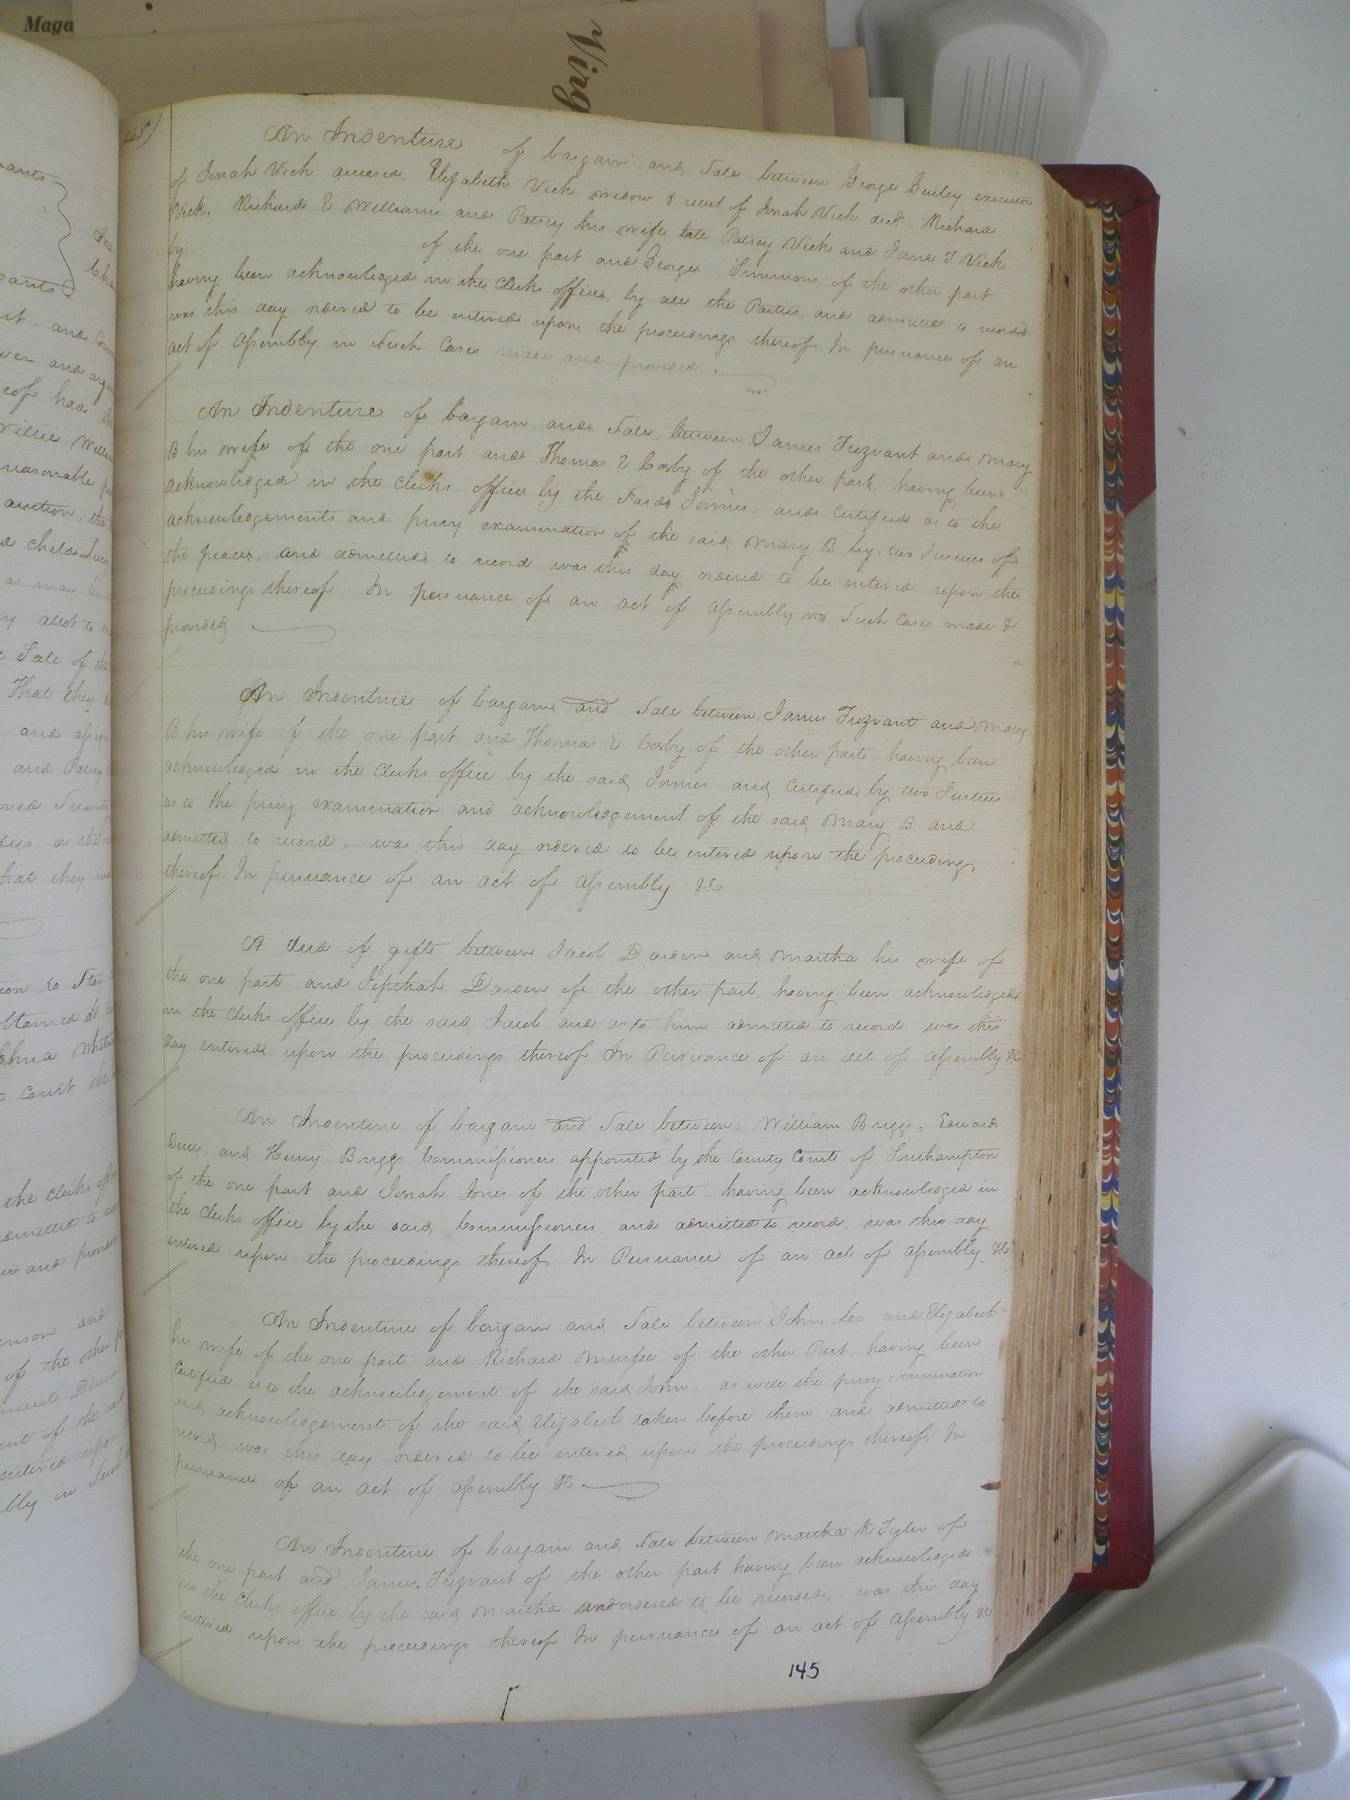 Maga
Virg
145)
An Indenture of bargain and Sale between George Gurley executor
of Josiah Vick deceased, Elizabeth Vick widow & relict of Josiah Vick decd. Richard
Vick, Richard E William and Patsey his wife late Patsey Vick and Jane T Vick
by of the one part and George Simmons of the other part
having been acknowledged in the Clerks office by all the Parties and admitted to record
was this day ordered to be entered upon the proceedings thereof In pursuance of an
act of Assembly in Such Cases made and provided.
An Indenture of bargain and Sale between James Trezvant and Mary
B his wife of the one part and Thomas E Cosby of the other part having been
acknowledged in the Clerks office by the Said James, and Certified as to the
acknowledgements and privy examination of the said Mary B by two Justices of
the peace, and admitted to record was this day ordered to be entered upon the
proceedings thereof In pursuance of an act of Assembly in Such Cases made &
provided
An Indenture of bargain and Sale between James Trezvant and Mary
B his wife of the one part and Thomas E Cosby of the other part, having been
acknowledged in the Clerks office by the said James and Certified by two Justices
as to the privy examination and acknowledgement of the said Mary B and
admitted to record, was this day ordered to be entered upon the proceedings
thereof In pursuance of an act of Assembly &c
A deed of gift between Jacob Darden and Martha his wife of
the one part and Jepthah Darden of the other part, having been acknowledged
in the Clerks office by the said Jacob and as to him admitted to record was this
day entered upon the proceedings thereof In Persuance of an act of Assembly &c
An Indenture of bargain and Sale between William Briggs, Edward
and Henry Briggs Commissioners appointed by the County Court of Southampton
of the one part and Josiah Jones of the other part having been acknowledged in
the Clerks office by the said Commissioners and admitted to record, was this day
entered upon the proceedings thereof In Persuance of an act of Assembly &c
An Indenture of bargain and Sale between John Lee and Elizabeth
his wife of the one part and Richard Murfee of the other Part, having been
Certified as to the acknowledgement of the said John, as well the privy examination
and acknowledgement of the said Elizabeth taken before them and admitted to
record was this day ordered to be entered upon the proceedings thereof In
pursuance of an act of Assembly &c
An Indenture of bargain and Sale between Martha A Tyler of
the one part and James Trezvant of the other part having been acknowledged
in the Clerks office by the said Martha and ordered to be recorded, was this day
entered upon the proceedings thereof In pursuance of an act of Assembly &c
145